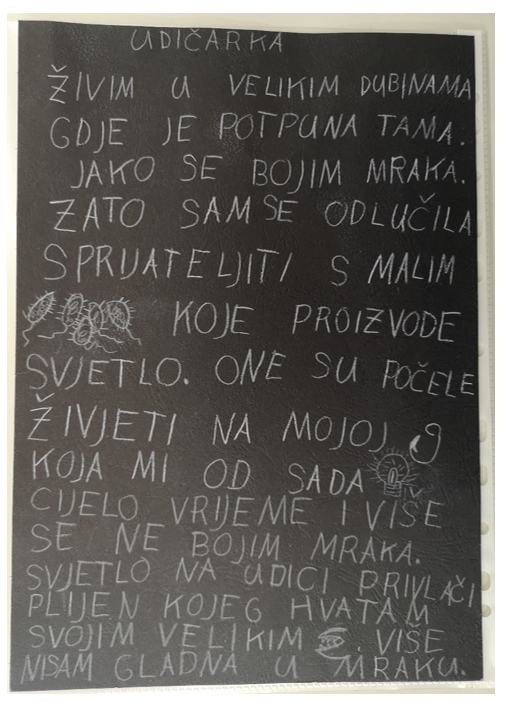 UDIČARKA
ŽIVIM U VELIKIM DUBINAMA
GDJE JE POTPUNA TAMA.
JAKO SE BOJIM MRAKA.
ZATO SAM SE ODLUČILA
SPRIJATELJITI S MALIM
KOJE PROIZVODE
SVJETLO. ONE SU POČELE
ŽIVJETI NA MOJOJ
KOJA MI OD SADA
CIJELO VRIJEME I VIŠE
SE NE BOJIM MRAKA.
SVJETLO NA UDICI PRIVLAČI
PLIJEN KOJEG HVATAM
SVOJIM VELIKIM . VIŠE
NISAM GLADNA U MRAKU.